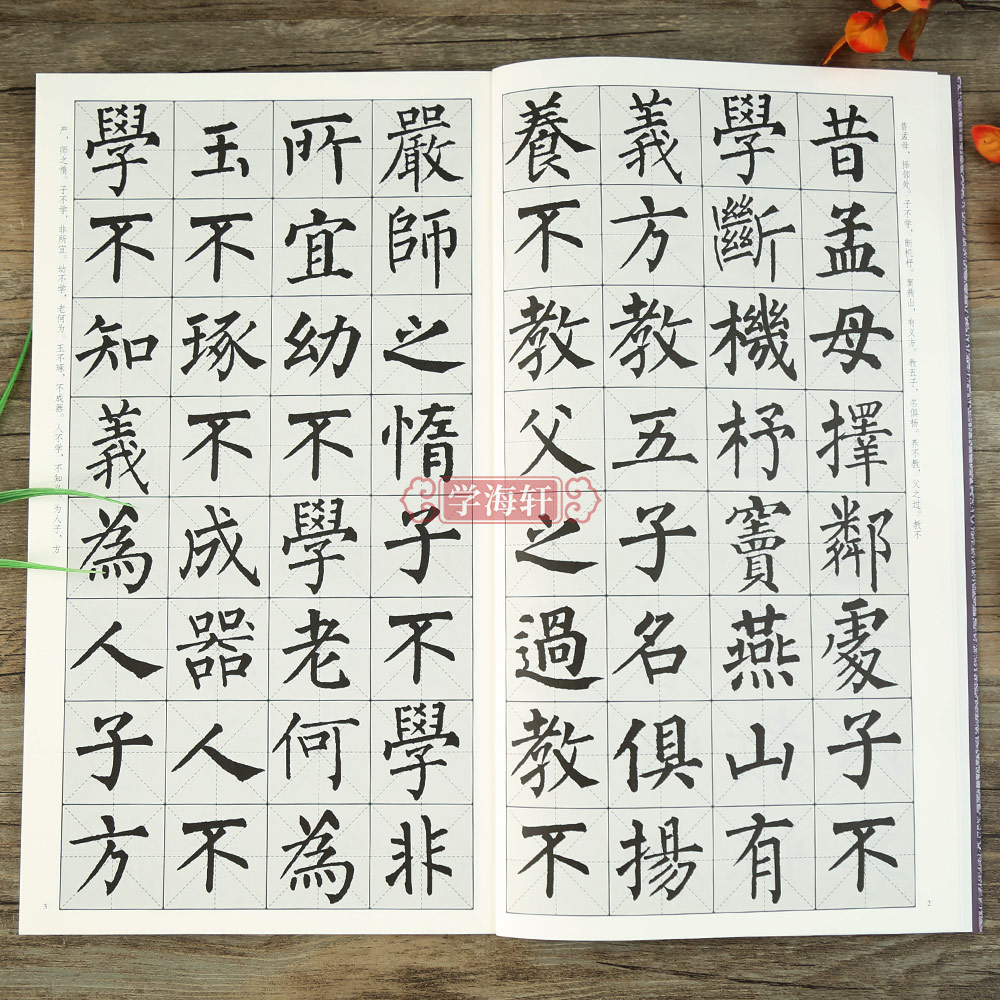 昔孟母，择邻处。子不学，断机杼。窦燕山，有义方。教五子，名俱扬。养不教，父之过。教不
昔孟母擇鄰處子不
學斷機杼竇燕山有
義方教五子名俱揚
養不教父之過教不
2
嚴師之惰子不學非
所宜幼不學老何為
玉不琢不成器人不
學不知義為人子方
严，师之惰。子不学，非所宜。幼不学，老何为。玉不琢，不成器。人不学，不知 为人子，方
3
学海轩